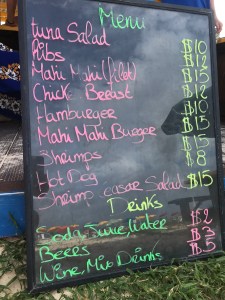 Menu
tuna Salad $10
Ribs $12
Mahi Mahi (filet) $15
Chick Breast $12
Hamburger $10
Mahi Mahi Burger $15
Shrimps $15
Hot Dog $8
Shrimp casar Salad $15
Drinks
Soda, Juice, Water $2
Beers $3
Wine, Mix Drinks $5